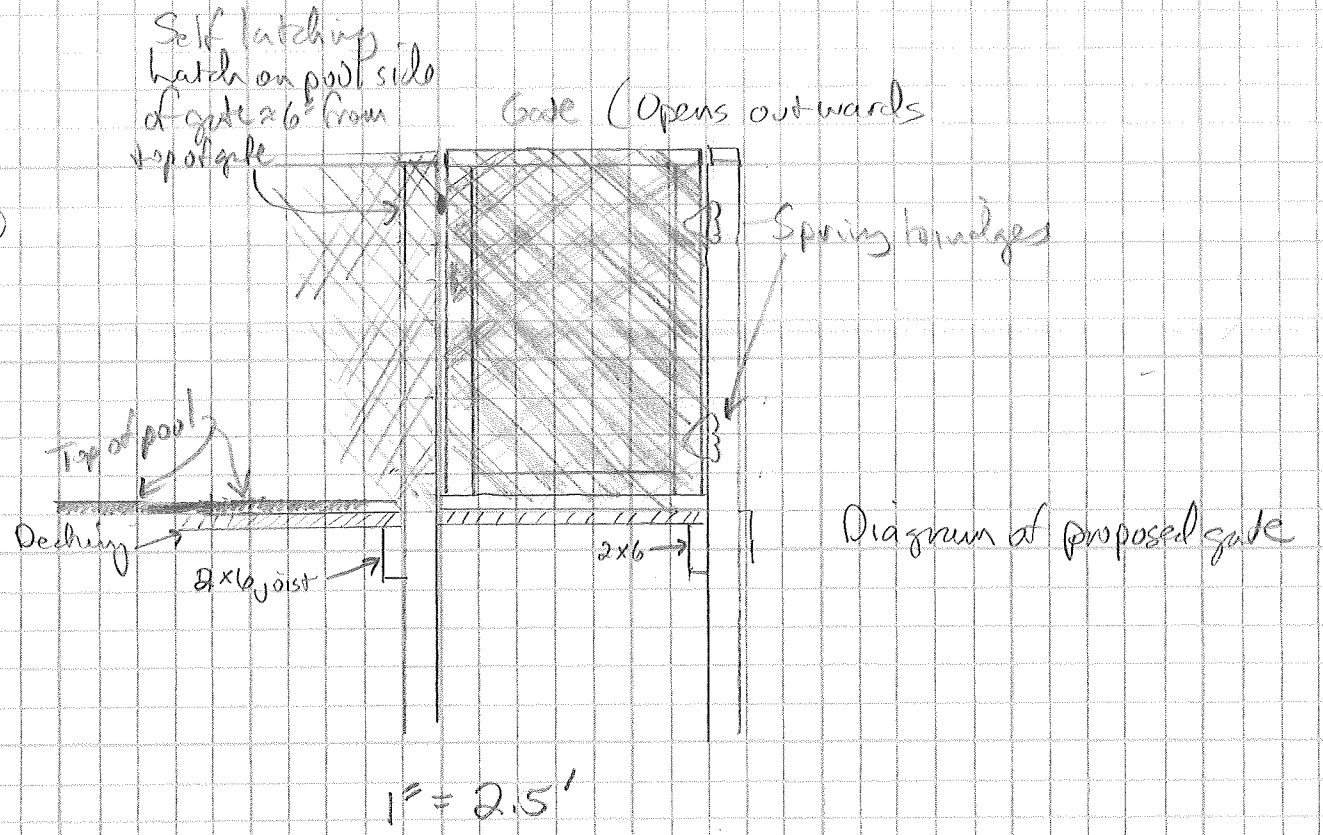 Self latching
Latch on pool side
of gate ≈ 6" from
top of gate
Gate (Opens outwards
)
Spring hindges
Top of pool
Decking
2x6 joist
2x6
Diagram of proposed gate
1" = 2.5'